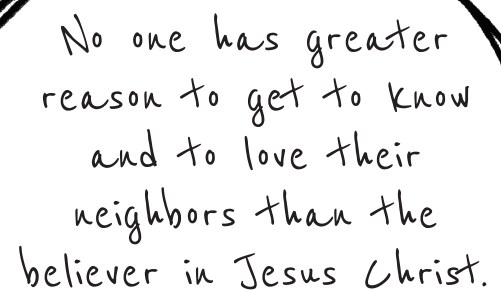 No one has greater
reason to get to know
and to love their
neighbors than the
believer in Jesus Christ.